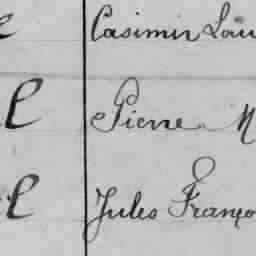 Casimir Lou
l Pierre M
l Jules Franço